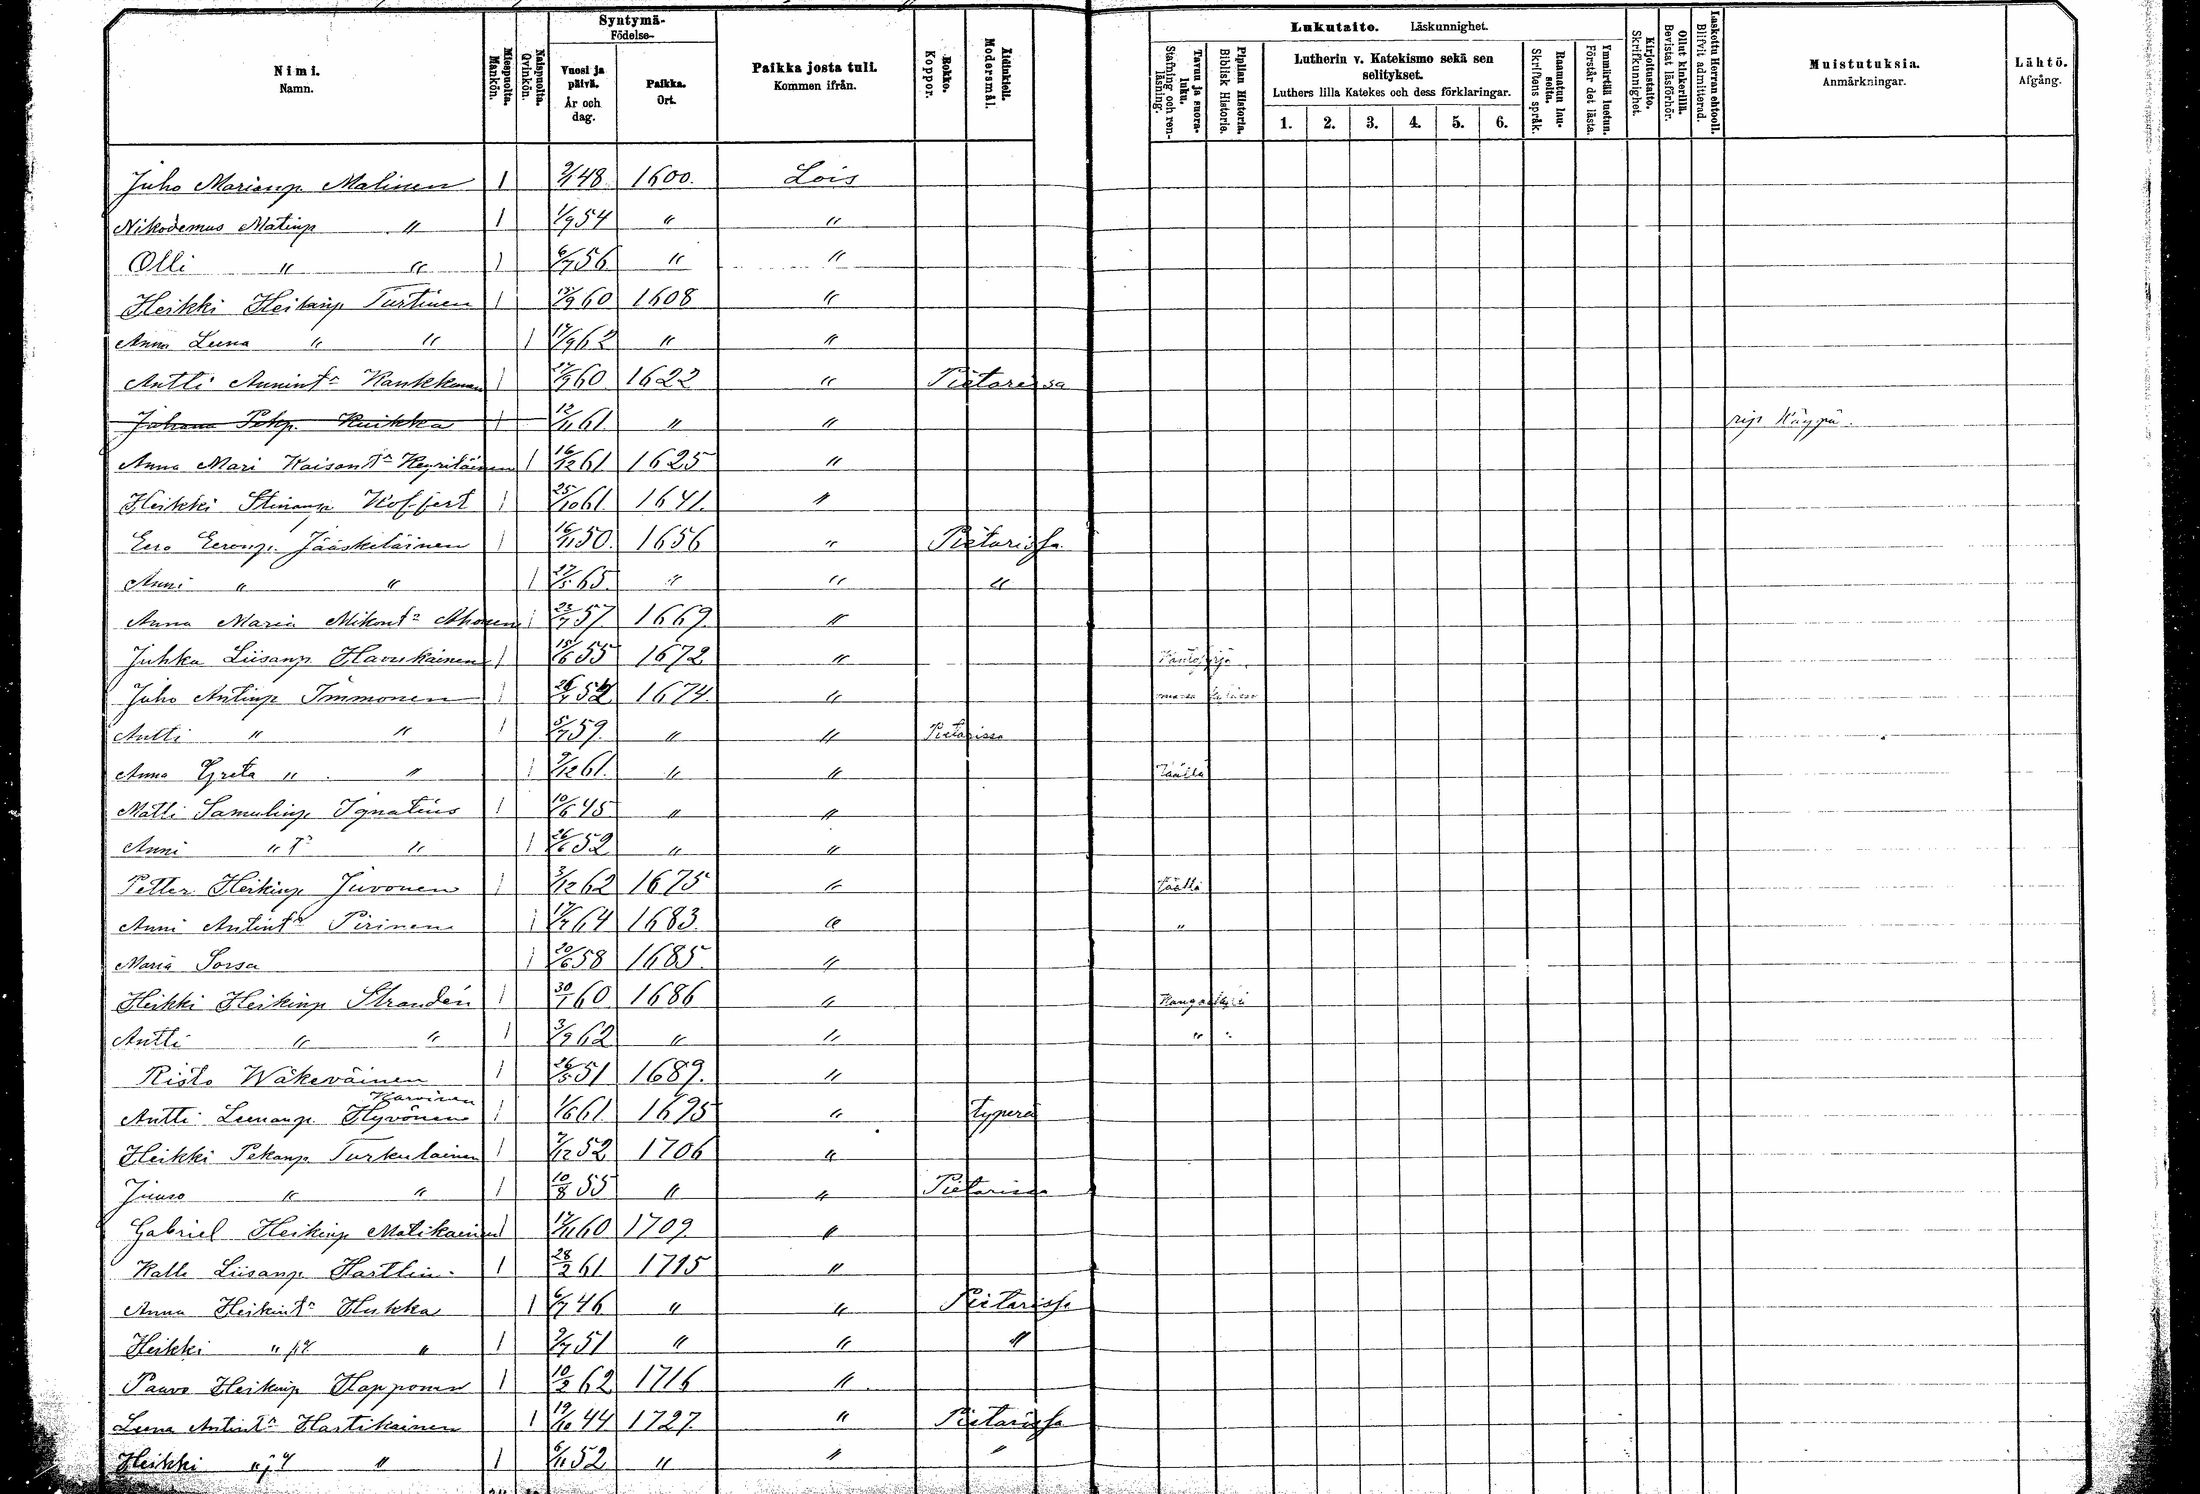 Syntymä-
Födelse-
Lukutaito. Läskunnighet.
Nimi.
Namn.
Miespuolta.
Mankön.
Naispuolta.
Qvinkön.
Vuosi ja päivä.
År och dag.
Paikka.
Ort.
Paikka josta tuli.
Kommen ifrån.
Rokko.
Koppor.
Äidinkieli.
Modersmål.
Tavuu ja suora-luku.
Stafning och ren-läsning.
Piplian Historia.
Biblisk Historie.
Lutherin v. Katekismo sekä sen selitykset.
Luthers lilla Katekes och dess förklaringar.
1. 2. 3. 4. 5. 6.
Raamatun lau-seita.
Skriftens språk.
Ymmärtää luetun.
Förstår det lästa.
Kirjoitustaito.
Skrifkunnighet.
Ollut kinkerillä.
Bevistat läsförhör.
Laskettu Herran ehtooll.
Blifvit admitterad.
Muistutuksia.
Anmärkningar.
Lähtö.
Afgång.
Juho Marianp Malinen 1 2/1 48 1600. Lois
Nikodemus Matinp " 1 1/9 54 " "
Olli " " 1 6/7 56 " "
Heikki Heikinp Turtinen 1 15/9 60 1608 "
Anna Leena " " 1 17/9 62 " "
Antti Annint Kankkunen 1 27/9 60 1622 " Pietarissa
Johana Pekp. Kuikka 1 12/11 61 " " rip Käppä.
Anna Mari Kaisant Keyriläinen 1 16/12 61 1625 "
Heikki Stinanp Koffert 1 25/10 61. 1641. "
Eero Eeronp. Jääskeläinen 1 16/11 50. 1656 " Pietarissa
Anni " " 1 27/5 65. " " "
Anna Maria Mikont Ahonen 1 23/7 57 1669. "
Juhka Liisanp Havukainen 1 15/6 55 1672 "
Juho Antinp Immonen 1 26/7 52 1674. "
Antti " " 1 5/7 59. " " Pietarissa
Anna Greta " " 1 9/12 61. " " täällä
Matti Samulinp Ignatius 1 10/6 45 " "
Anni " t " 1 26/6 52 " "
Petter Heikinp Juvonen 1 3/12 62 1675 " täällä
Anni Antint Pirinen 1 17/7 64 1683. " "
Maria Sorsa 1 20/6 58 1685. "
Heikki Heikinp Strandén 1 30/1 60 1686 "
Antti " " 1 3/9 62 " " "
Risto Wäkeväinen 1 26/5 51 1689. "
Karvinen
Antti Leenanp. Hyvönen 1 1/6 61. 1695 " typerä
Heikki Pekanp Turkulainen 1 7/12 52 1706 "
Juuso " " 1 10/8 55 " " Pietarissa
Gabriel Heikinp Matikainen 1 17/11 60 1709. "
Kalle Liisanp Hartlin 1 28/2 61 1715 "
Anna Heikint Hukka 1 6/7 46 " " Pietarissa
Heikki " " 1 9/7 51 " " "
Paavo Heikinp Happonen 1 10/2 62 1716 "
Leena Antint Hartikainen 1 19/10 44 1727. " Pietarissa
Heikki " " 1 6/11 52 " " "